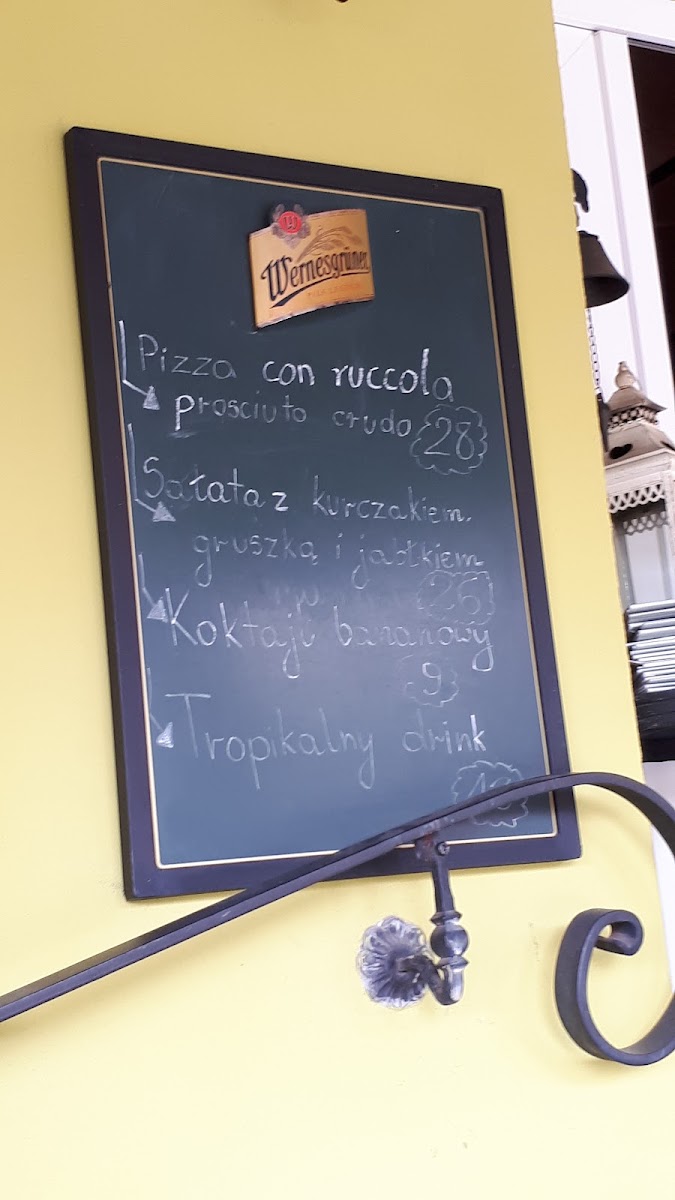 Wernesgrüner
PILS LEGENDE
Pizza con ruccola
prosciuto crudo 28
Sałata z kurczakiem,
gruszką i jabłkiem
26
Koktajl bananowy
9
Tropikalny drink